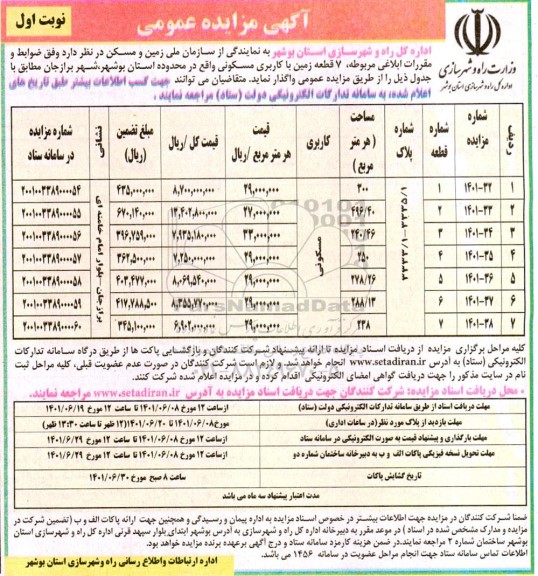 آگهی مزایده عمومی
نوبت اول
وزارت راه و شهرسازی
اداره کل راه و شهرسازی استان بوشهر
اداره کل راه و شهرسازی استان بوشهر به نمایندگی از سازمان ملی زمین و مسکن در نظر دارد وفق ضوابط و
مقررات ابلاغی مربوطه، ۷ قطعه زمین با کاربری مسکونی واقع در محدوده استان بوشهر،شهر برازجان مطابق با
جدول ذیل را از طریق مزایده عمومی واگذار نماید، متقاضیان می توانند جهت کسب اطلاعات بیشتر طبق تاریخ های
اعلام شده، به سامانه تدارکات الکترونیکی دولت (ستاد) مراجعه نمایند.
ردیف | شماره مزایده | شماره قطعه | شماره پلاک | مساحت (هر متر مربع) | کاربری | قیمت هر متر مربع /ریال | قیمت کل /ریال | مبلغ تضمین (ریال) | نشانی | شماره مزایده در سامانه ستاد
۱ | ۱۴۰۱-۳۲ | ۱ | ۳۰۰ | ۲۹,۰۰۰,۰۰۰ | ۸,۷۰۰,۰۰۰,۰۰۰ | ۴۳۵,۰۰۰,۰۰۰ | ۲۰۰۱۰۰۳۳۸۹۰۰۰۰۵۴
۲ | ۱۴۰۱-۳۳ | ۲ | ۴۹۶/۴۰ | ۲۷,۰۰۰,۰۰۰ | ۱۳,۴۰۲,۸۰۰,۰۰۰ | ۶۷۰,۱۴۰,۰۰۰ | ۲۰۰۱۰۰۳۳۸۹۰۰۰۰۵۵
۳ | ۱۴۰۱-۳۴ | ۳ | ۲۴۰/۴۶ | ۳۳,۰۰۰,۰۰۰ | ۷,۹۳۵,۱۸۰,۰۰۰ | ۳۹۶,۷۵۹,۰۰۰ | ۲۰۰۱۰۰۳۳۸۹۰۰۰۰۵۶
۴ | ۱۴۰۱-۳۵ | ۴ | ۲۵۰ | ۲۹,۰۰۰,۰۰۰ | ۷,۲۵۰,۰۰۰,۰۰۰ | ۳۶۲,۵۰۰,۰۰۰ | ۲۰۰۱۰۰۳۳۸۹۰۰۰۰۵۷
۵ | ۱۴۰۱-۳۶ | ۵ | ۲۷۸/۲۶ | ۲۹,۰۰۰,۰۰۰ | ۸,۰۶۹,۵۴۰,۰۰۰ | ۴۰۳,۴۷۷,۰۰۰ | ۲۰۰۱۰۰۳۳۸۹۰۰۰۰۵۸
۶ | ۱۴۰۱-۳۷ | ۶ | ۲۸۸/۱۳ | ۲۹,۰۰۰,۰۰۰ | ۸,۳۵۵,۷۷۰,۰۰۰ | ۴۱۷,۷۸۸,۵۰۰ | ۲۰۰۱۰۰۳۳۸۹۰۰۰۰۵۹
۷ | ۱۴۰۱-۳۸ | ۷ | ۲۳۸ | ۲۹,۰۰۰,۰۰۰ | ۶,۹۰۲,۰۰۰,۰۰۰ | ۳۴۵,۱۰۰,۰۰۰ | ۲۰۰۱۰۰۳۳۸۹۰۰۰۰۶۰
مسکونی
برازجان-بلوار امام خامنه ای
کلیه مراحل برگزاری مزایده از دریافت اسناد مزایده تا ارائه پیشنهاد شرکت کنندگان و بازگشایی پاکت ها از طریق درگاه سامانه تدارکات
الکترونیکی (ستاد) به آدرس www.setadiran.ir انجام خواهد شد. و لازم است شرکت کنندگان در صورت عدم عضویت قبلی، کلیه مراحل ثبت
نام در سایت مذکور را جهت دریافت گواهی امضای الکترونیکی اقدام کرده و در مزایده اعلام شده شرکت کنند.
• محل دریافت اسناد مزایده: شرکت کنندگان جهت دریافت اسناد مزایده به آدرس www.setadiran.ir مراجعه نمایند.
مهلت دریافت اسناد از طریق سامانه تدارکات الکترونیکی دولت (ستاد) | از ساعت ۱۲ مورخ ۱۴۰۱/۰۶/۰۸ تا ساعت ۱۲ مورخ ۱۴۰۱/۰۶/۱۹
مهلت بازدید از پلاک مورد نظر (در ساعات اداری) | مورخ ۱۴۰۱/۰۶/۰۸ تا ۱۴۰۱/۰۶/۲۰ (۱۲ ظهر تا ساعت ۱۳:۳۰ ظهر)
مهلت بارگذاری و پیشنهاد قیمت به صورت الکترونیکی در سامانه ستاد | از ساعت ۱۲ مورخ ۱۴۰۱/۰۶/۰۸ تا ساعت ۱۲ مورخ ۱۴۰۱/۶/۲۹
مهلت تحویل نسخه فیزیکی پاکات الف و ب به دبیرخانه ساختمان شماره دو | از ساعت ۱۲ مورخ ۱۴۰۱/۰۶/۰۸ تا ساعت ۱۲ مورخ ۱۴۰۱/۶/۲۹
تاریخ گشایش پاکات | ساعت ۸ صبح مورخ ۱۴۰۱/۰۶/۳۰
مدت اعتبار پیشنهاد سه ماه می باشد
ضمنا شرکت کنندگان در مزایده جهت اطلاعات بیشتر در خصوص اسناد مزایده به اداره پیمان و رسیدگی و همچنین جهت ارائه پاکات الف و ب (تضمین شرکت در
مزایده و مدارک مشخص شده در اسناد) در موعد مقرر به دبیرخانه اداره کل راه و شهرسازی به آدرس بوشهر ابتدای بلوار سپهبد قرنی اداره کل راه و شهرسازی استان
بوشهر ساختمان شماره ۲ مراجعه نمایند.در ضمن هزینه کارمزد سامانه ستاد و درج آگهی برعهده برنده مزایده خواهد بود.
اطلاعات تماس سامانه ستاد جهت انجام مراحل عضویت در سامانه ۱۴۵۶ می باشد.
اداره ارتباطات و اطلاع رسانی راه و شهرسازی استان بوشهر